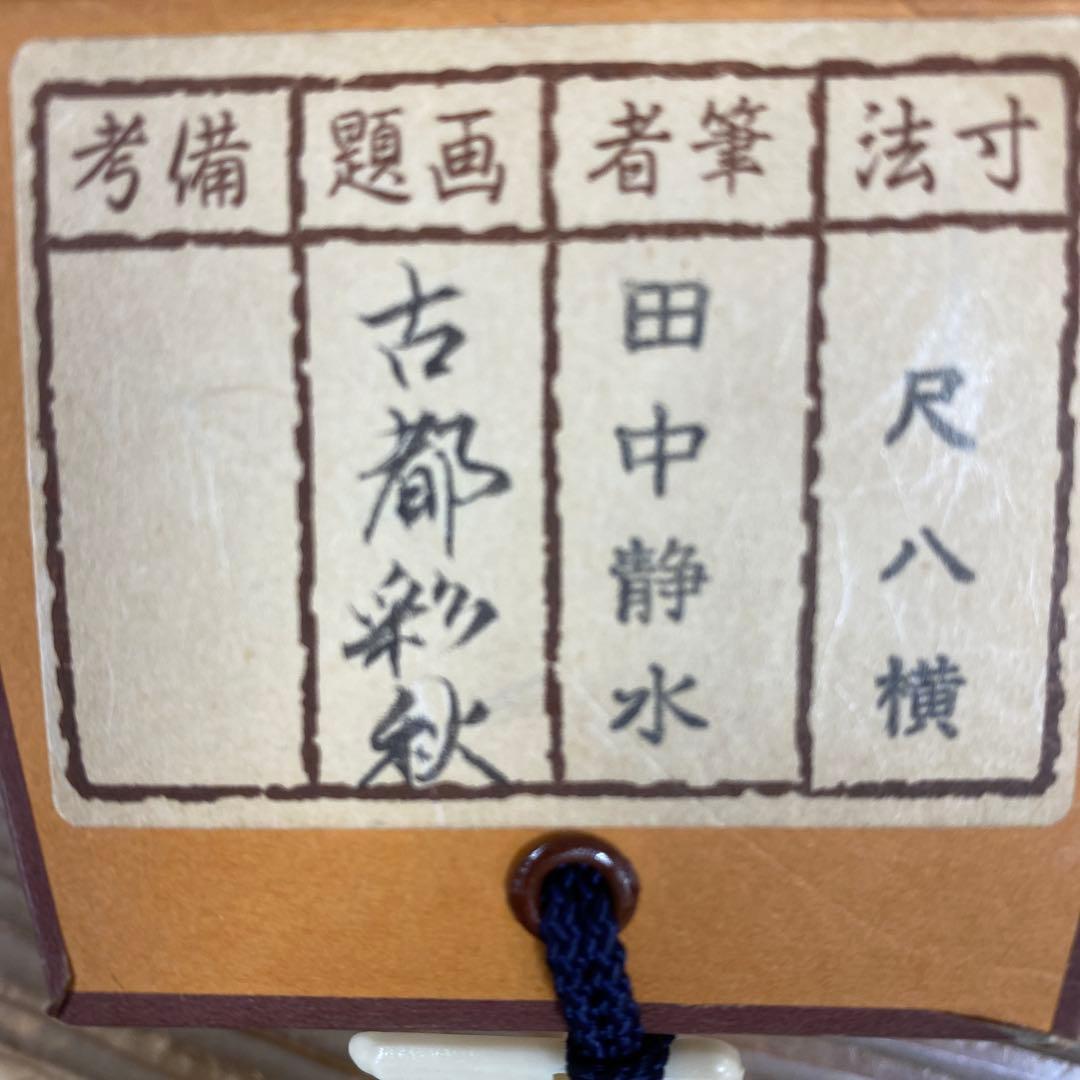 寸法
尺八横
筆者
田中静水
画題
古都彩秋
備考